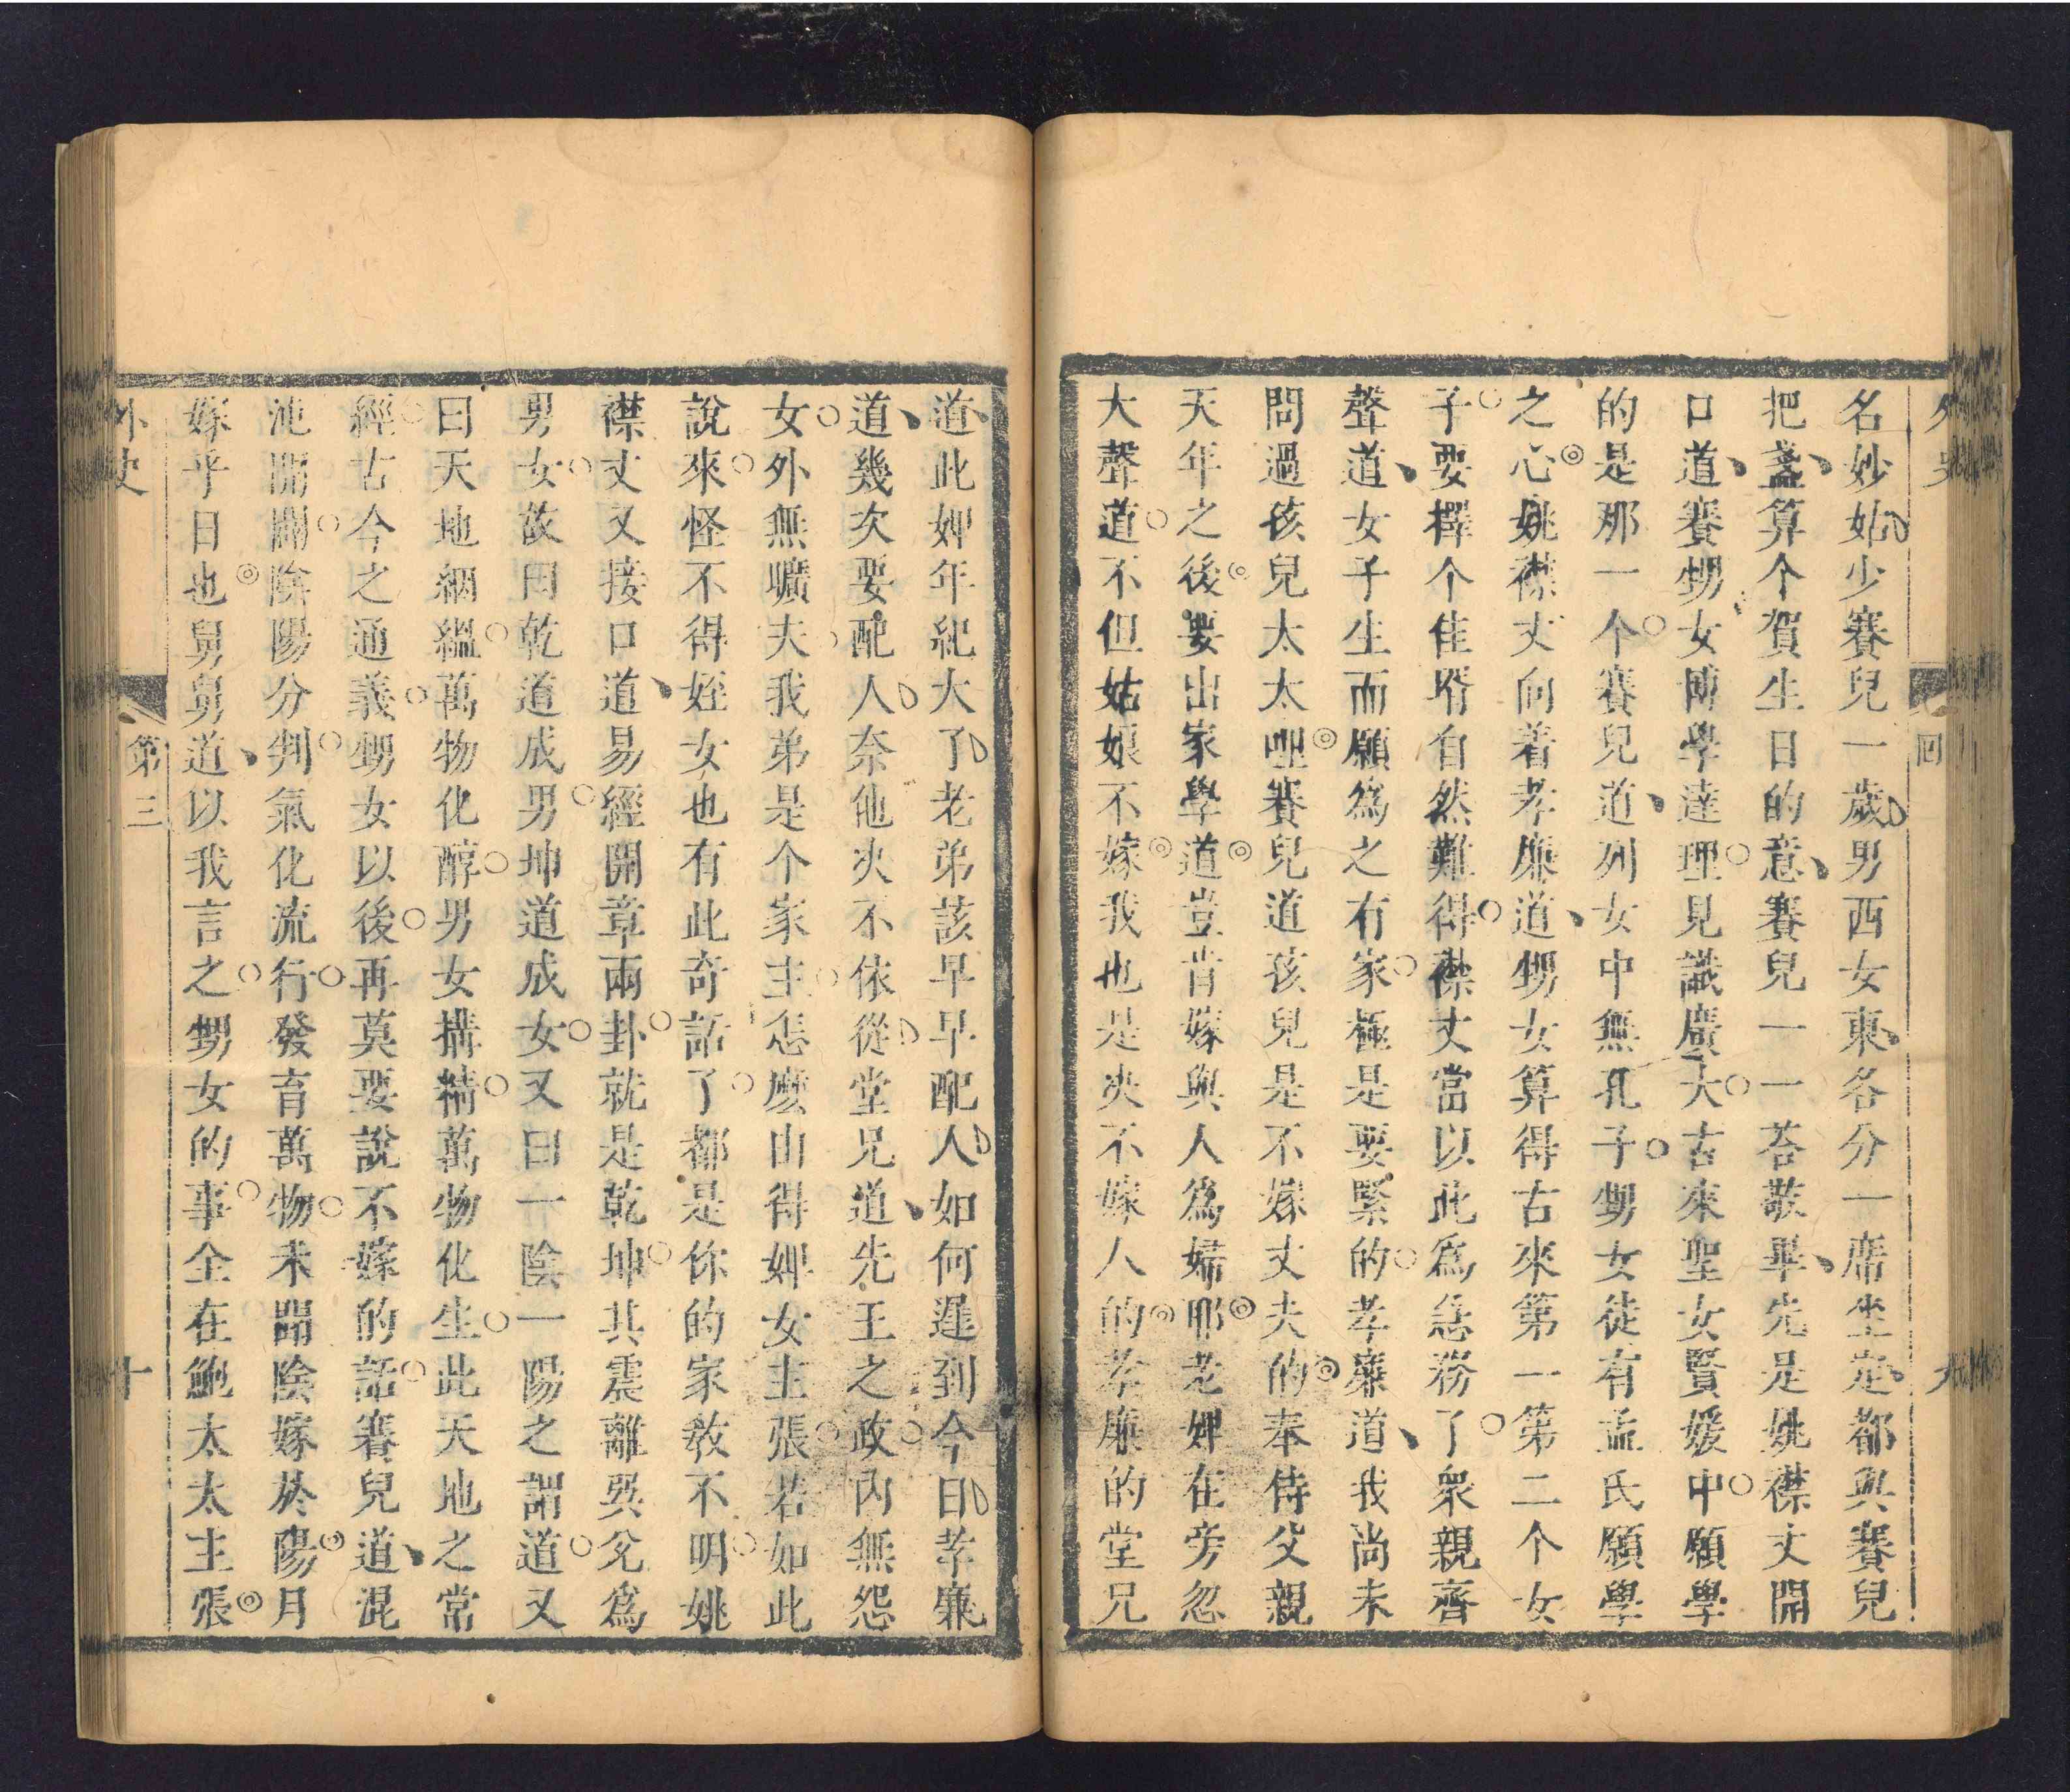 名妙姑少賽兒一歲男西女東各分一席坐定都與賽兒
把盞算个賀生日的意賽兒一一荅敬畢先是姚襟丈開
口道賽甥女博學達理見識廣大古來聖女賢媛中願學
的是那一个賽兒道列女中無孔子甥女徒有孟氏願學
之心姚襟丈向着孝廉道甥女算得古來第一第二个女
子要擇个佳壻自然難得襟丈當以此爲急務了衆親齊
聲道女子生而願爲之有家極是要緊的孝廉道我尚未
問過孩兒太太哩賽兒道孩兒是不嫁丈夫的奉侍父親
天年之後要出家學道豈肯嫁與人爲婦耶老婢在旁忽
大聲道不但姑娘不嫁我也是決不嫁人的孝廉的堂兄
道此婢年紀大了老弟該早早配人如何遲到今日孝廉
道幾次要配人奈他決不依從堂兄道先王之政內無怨
女外無曠夫我弟是个家主怎麼由得婢女主張若如此
說來怪不得姪女也有此奇話了都是你的家教不明姚
襟丈又接口道易經開章兩卦就是乾坤其震離巽兌爲
男女故曰乾道成男坤道成女又曰一陰一陽之謂道又
曰天地絪縕萬物化醇男女搆精萬物化生此天地之常
經古今之通義甥女以後再莫要說不嫁的話賽兒道混
沌開闢陰陽分判氣化流行發育萬物未聞陰嫁於陽月
嫁乎日也舅舅道以我言之甥女的事全在鮑太太主張
外史
第三
十